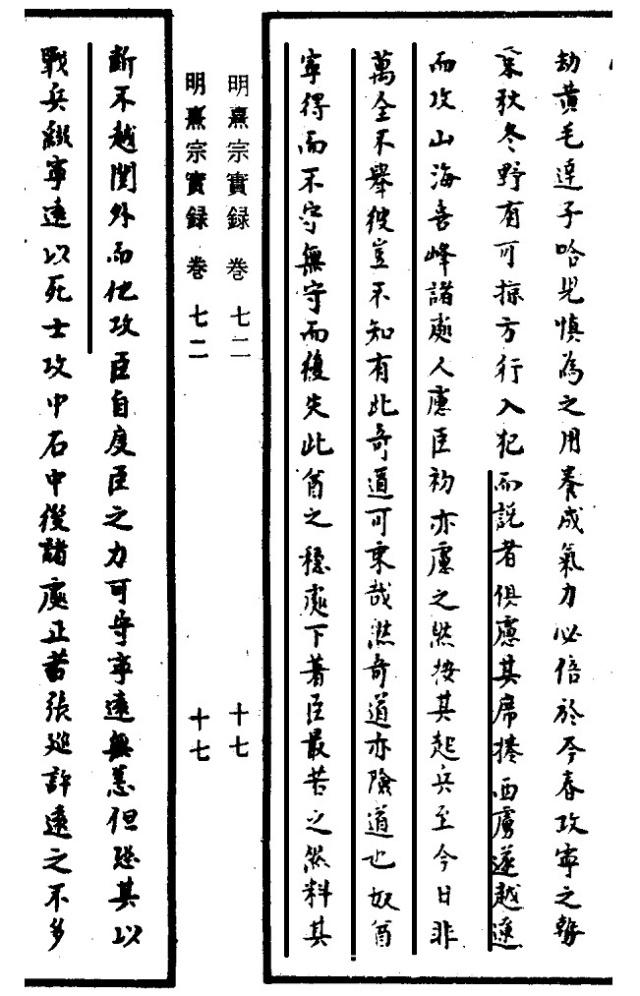 劫黄毛達子哈兒慎為之用養成氣力必倍於今春攻寧之勢
秋冬野有可掠方行入犯而説者俱慮其席捲西虜遂越遼
而攻山海喜峰諸處人慮臣初亦慮之然按其起兵至今日非
萬全不舉彼豈不知有此奇道可乘哉然奇道亦險道也奴酋
寧得而不守無守而復失此酋之穩處下著臣最苦之然料其
明熹宗實録 卷七二 十七
明熹宗實録 卷七二 十七
斷不越関外而他攻臣自度臣之力可守寧遠無恙但恐其以
戰兵綴寧遠以死士攻中右中後諸處正昔張廵許遠之不多